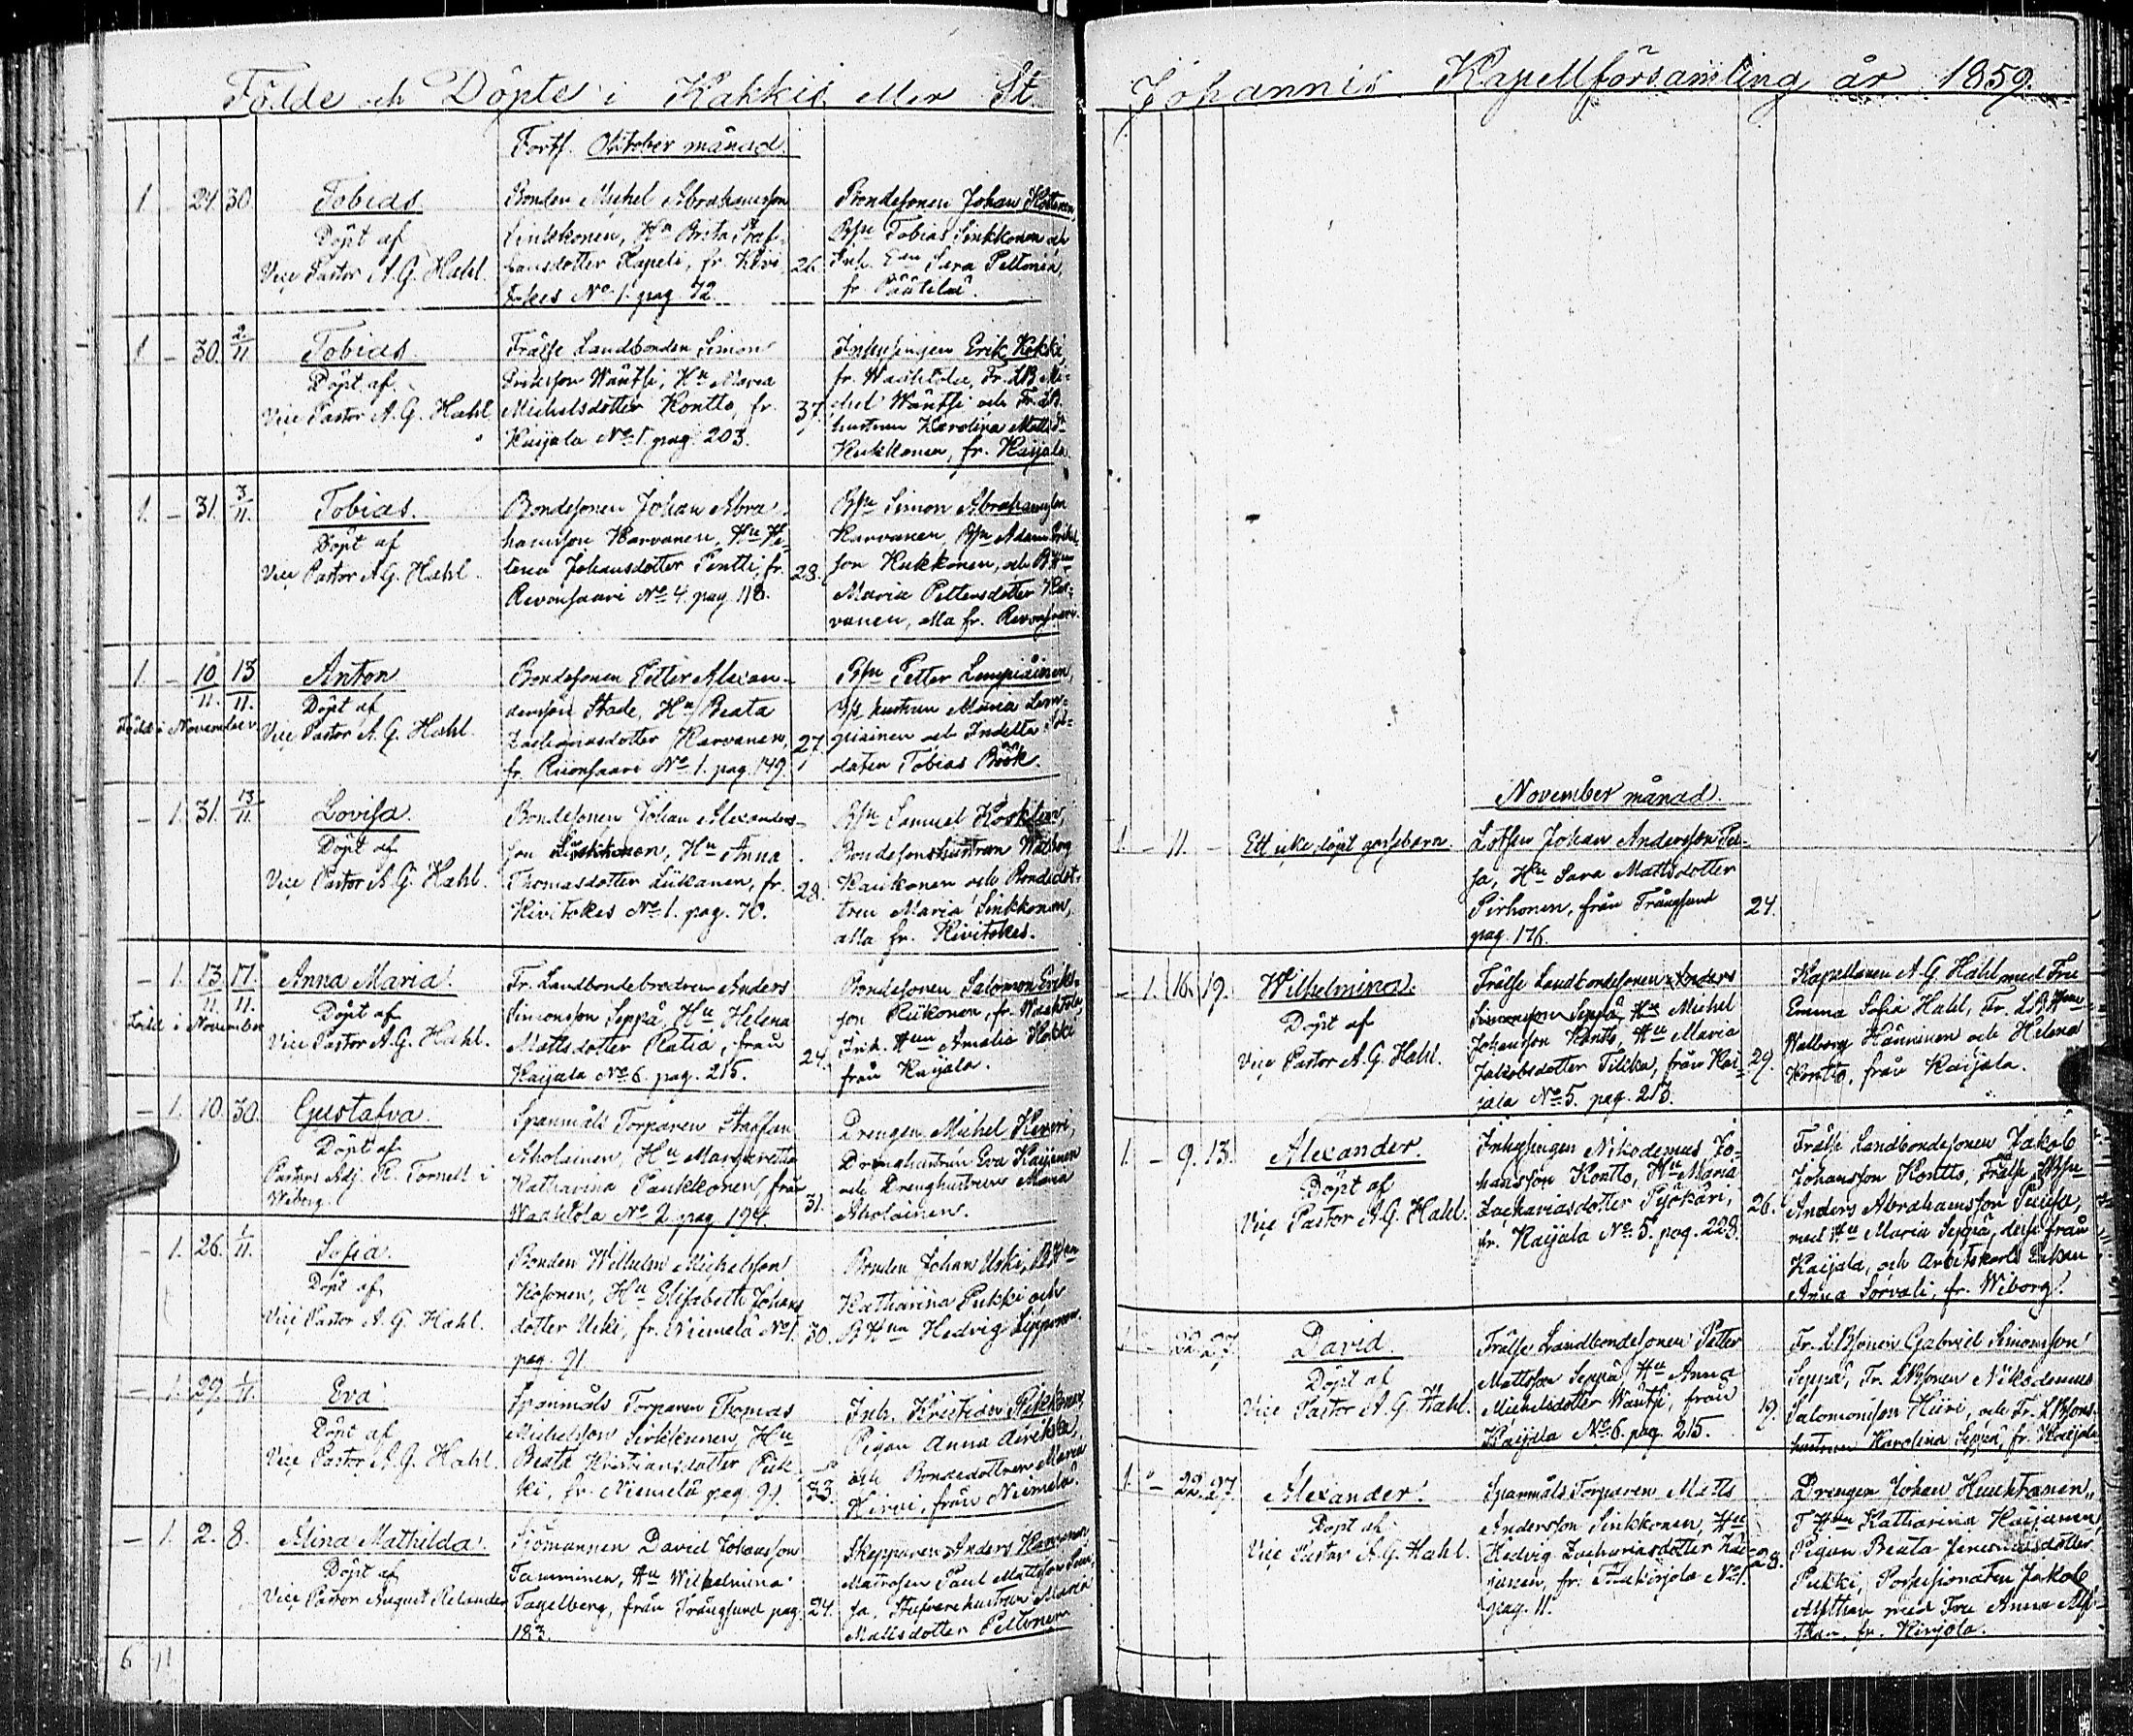 Födde och Döpte i Kakkis eller St.
Fortf. Oktober månad.
1 - 24. 30. Tobias
Döpt af
Vice Pastor A. G. Hahl.
Bonden Michel Abrahamsson
Sinkkonen, Hu Brita Staf-
fansdotter Kapeli, fr. Kivi
26.
No 1. pag. 72.
Bondesonen Johan
Bsn Tobias Sinkkonen och
Inh. Sara Peltonen,
fr. Päätilä.
1 - 30. 2/11 Tobias
Döpt af
Vice Pastor A. G. Hahl
Frälse Landbonden Simon
Wäntsi, Hu Maria
Michelsdotter Kontto, fr.
Kaijala No 1. pag. 203.
37.
Inhysingen Erik Kokki,
fr. Waahtola, Fr. LB Mi-
chel Wäntsi och Fr. LB.
hustrun Karolina Matts dr
Kukkonen, fr. Kaijala
1. - 31. 3/11. Tobias.
Döpt af
Vice Pastor A G. Hahl.
Bondesonen Johan Abra-
hamsson Karvanen, Hu He-
lena Johansdotter Pentti, fr.
Revonsaari No 4. pag. 118.
28.
Bsn Simon Abrahamsson
Karvanen, Bsn Adam
son Kukkonen, och
Maria Pettersdotter Kar-
vanen, alla fr. Revonsaari.
1 - 10/11. 13/11. Anton
Född i November
Döpt af
Vice Pastor A. G. Hahl
Bondesonen Petter Alexan-
dersson Stade, Hu Beata
Zachariasdotter Karvanen,
fr. Revonsaari No 1. pag. 149.
27.
Bsn Petter Lempiäinen,
Bs hustrun Maria Lem-
piäinen och Indelta Sol-
daten Tobias Böök.
- 1. 31. 13/11 Lovisa.
Döpt af
Vice Pastor A. G. Hahl.
Bondesonen Johan Alexanders-
son Sinkkonen, Hu Anna
Thomasdotter Liikanen, fr.
Kivitokes No 1. pag. 70.
28.
Bsn Samuel
Bondesonshustrun Walborg
Kaukonen och Bondedot-
tren Maria Sinkkonen,
alla fr. Kivitokes.
- 1. 13/11. 17/11. Anna Maria.
Född i November
Döpt af
Vice Pastor A. G. Hahl.
Fr. Landbondebrodren Anders
Simonsson Seppä, Hu Helena
Mattsdotter Ratia, från
Kaijala No 6. pag. 215.
24.
Bondesonen Salomon Eriks-
son Kiikonen, fr. Waahtola,
Inh. Hun Amalia Kokki
från Kaijala.
- 1. 10. 30. Gustafva.
Döpt af
Pastors Adj. R. Tornell i
Wiborg.
Spanmåls Torparen Staffan
Aholainen, Hu Margaretha
Katharina Paukkonen, från
Waahtola No 2 pag. 194.
31.
Drengen Michel Hirvi,
Drenghustrun Eva Kaijanen
och Drenghustrun Maria
Aholainen.
- 1. 26. 1/11. Sofia.
Döpt af
Vice Pastor A. G. Hahl.
Bonden Wilhelm Michelsson
Kosonen, Hu Elisabeth Johans
dotter Uski, fr. Niemelä No 1.
pag. 91.
30.
Bonden Johan Uski, BHun
Katharina Pukki och
BHun Hedvig Sipponen.
- 1. 29. 1/11. Eva
Döpt af
Vice Pastor A. G. Hahl.
Spanmåls Torparen Thomas
Michelsson Sirkkunen, Hu
Beata Kristiansdotter Puk-
ki, fr. Niemelä pag. 91.
33.
Inh. Kristian
Pigan Anna
och Bondedottren Maria
Hirvi, från Niemelä.
- 1. 2. 8. Alina Mathilda.
Döpt af
Vice Pastor August Relander
Sjömannen David Johansson
Tamminen, Hu Wilhelmina
Fagelberg, från Trångsund pag.
183.
24.
Skepparen Anders
Matrosen Paul Mattsson
sa, Styfvarehustrun Maria
Mattsdotter Peltonen
6 11
Johannis Kapellförsamling år 1859.
November månad.
1 - 11. - Ett icke döpt gossebarn.
Lotsen Johan Andersson Pui-
sa, Hu Sara Mattsdotter
Pirhonen, från Trångsund
pag. 176.
24.
- 1. 16. 19. Wilhelmina.
Döpt af
Vice Pastor A. G. Hahl.
Frälse Landbondesonen Anders
Simonsson Seppä, Hu Michel
Johansson Kontto, Hu Maria
Jakobsdotter Tilkka, från Kai-
jala No 5. pag. 213.
29.
Kapellanen A G Hahl med Fru
Emma Sofia Hahl, Fr. LB Hun
Walborg Hänninen och Helena
Kontto, från Kaijala.
1. - 9. 13. Alexander.
Döpt af
Vice Pastor A G. Hahl.
Inhysingen Nikodemus Jo-
hansson Kontto, Hu Maria
Zachariasdotter Pyökäri,
fr. Kaijala No 5. pag. 228.
26.
Frälse Landbondesonen Jakob
Johansson Kontto, Frälse LBsn
Anders Abrahamsson Puisa,
med Hu Maria Seppä, desse från
Kaijala, och Arbetskarls Enkan
Anna Sorvali, fr. Wiborg.
1 - 22. 27. David.
Döpt af
Vice Pastor A. G. Hahl.
Frälse Landbondesonen Petter
Mattsson Seppä, Hu Anna
Michelsdotter Wäntsi, från
Kaijala No 6. pag. 215.
19.
Fr. LBsonen Gabriel Simonsson
Seppä, Fr. LBsonen Nikodemus
Salomonsson Hiiri, och Fr. LBsons-
hustrun Karolina Seppä, fr. Kaijala
1. - 22. 27. Alexander.
Döpt af
Vice Pastor A. G. Hahl.
Spanmåls Torparen Matts
Andersson Sinkkonen, Hu
Hedvig Zachariasdotter Kai-
janen, fr. No 1.
pag. 11.
28.
Drengen Johan
T Hun Katharina Kaijanen,
Pigan Beata Jeremiasdotter
Pukki, Possessionaten Jakob
Alfthan med Fru Anna Alf-
than, fr. Kirjola.